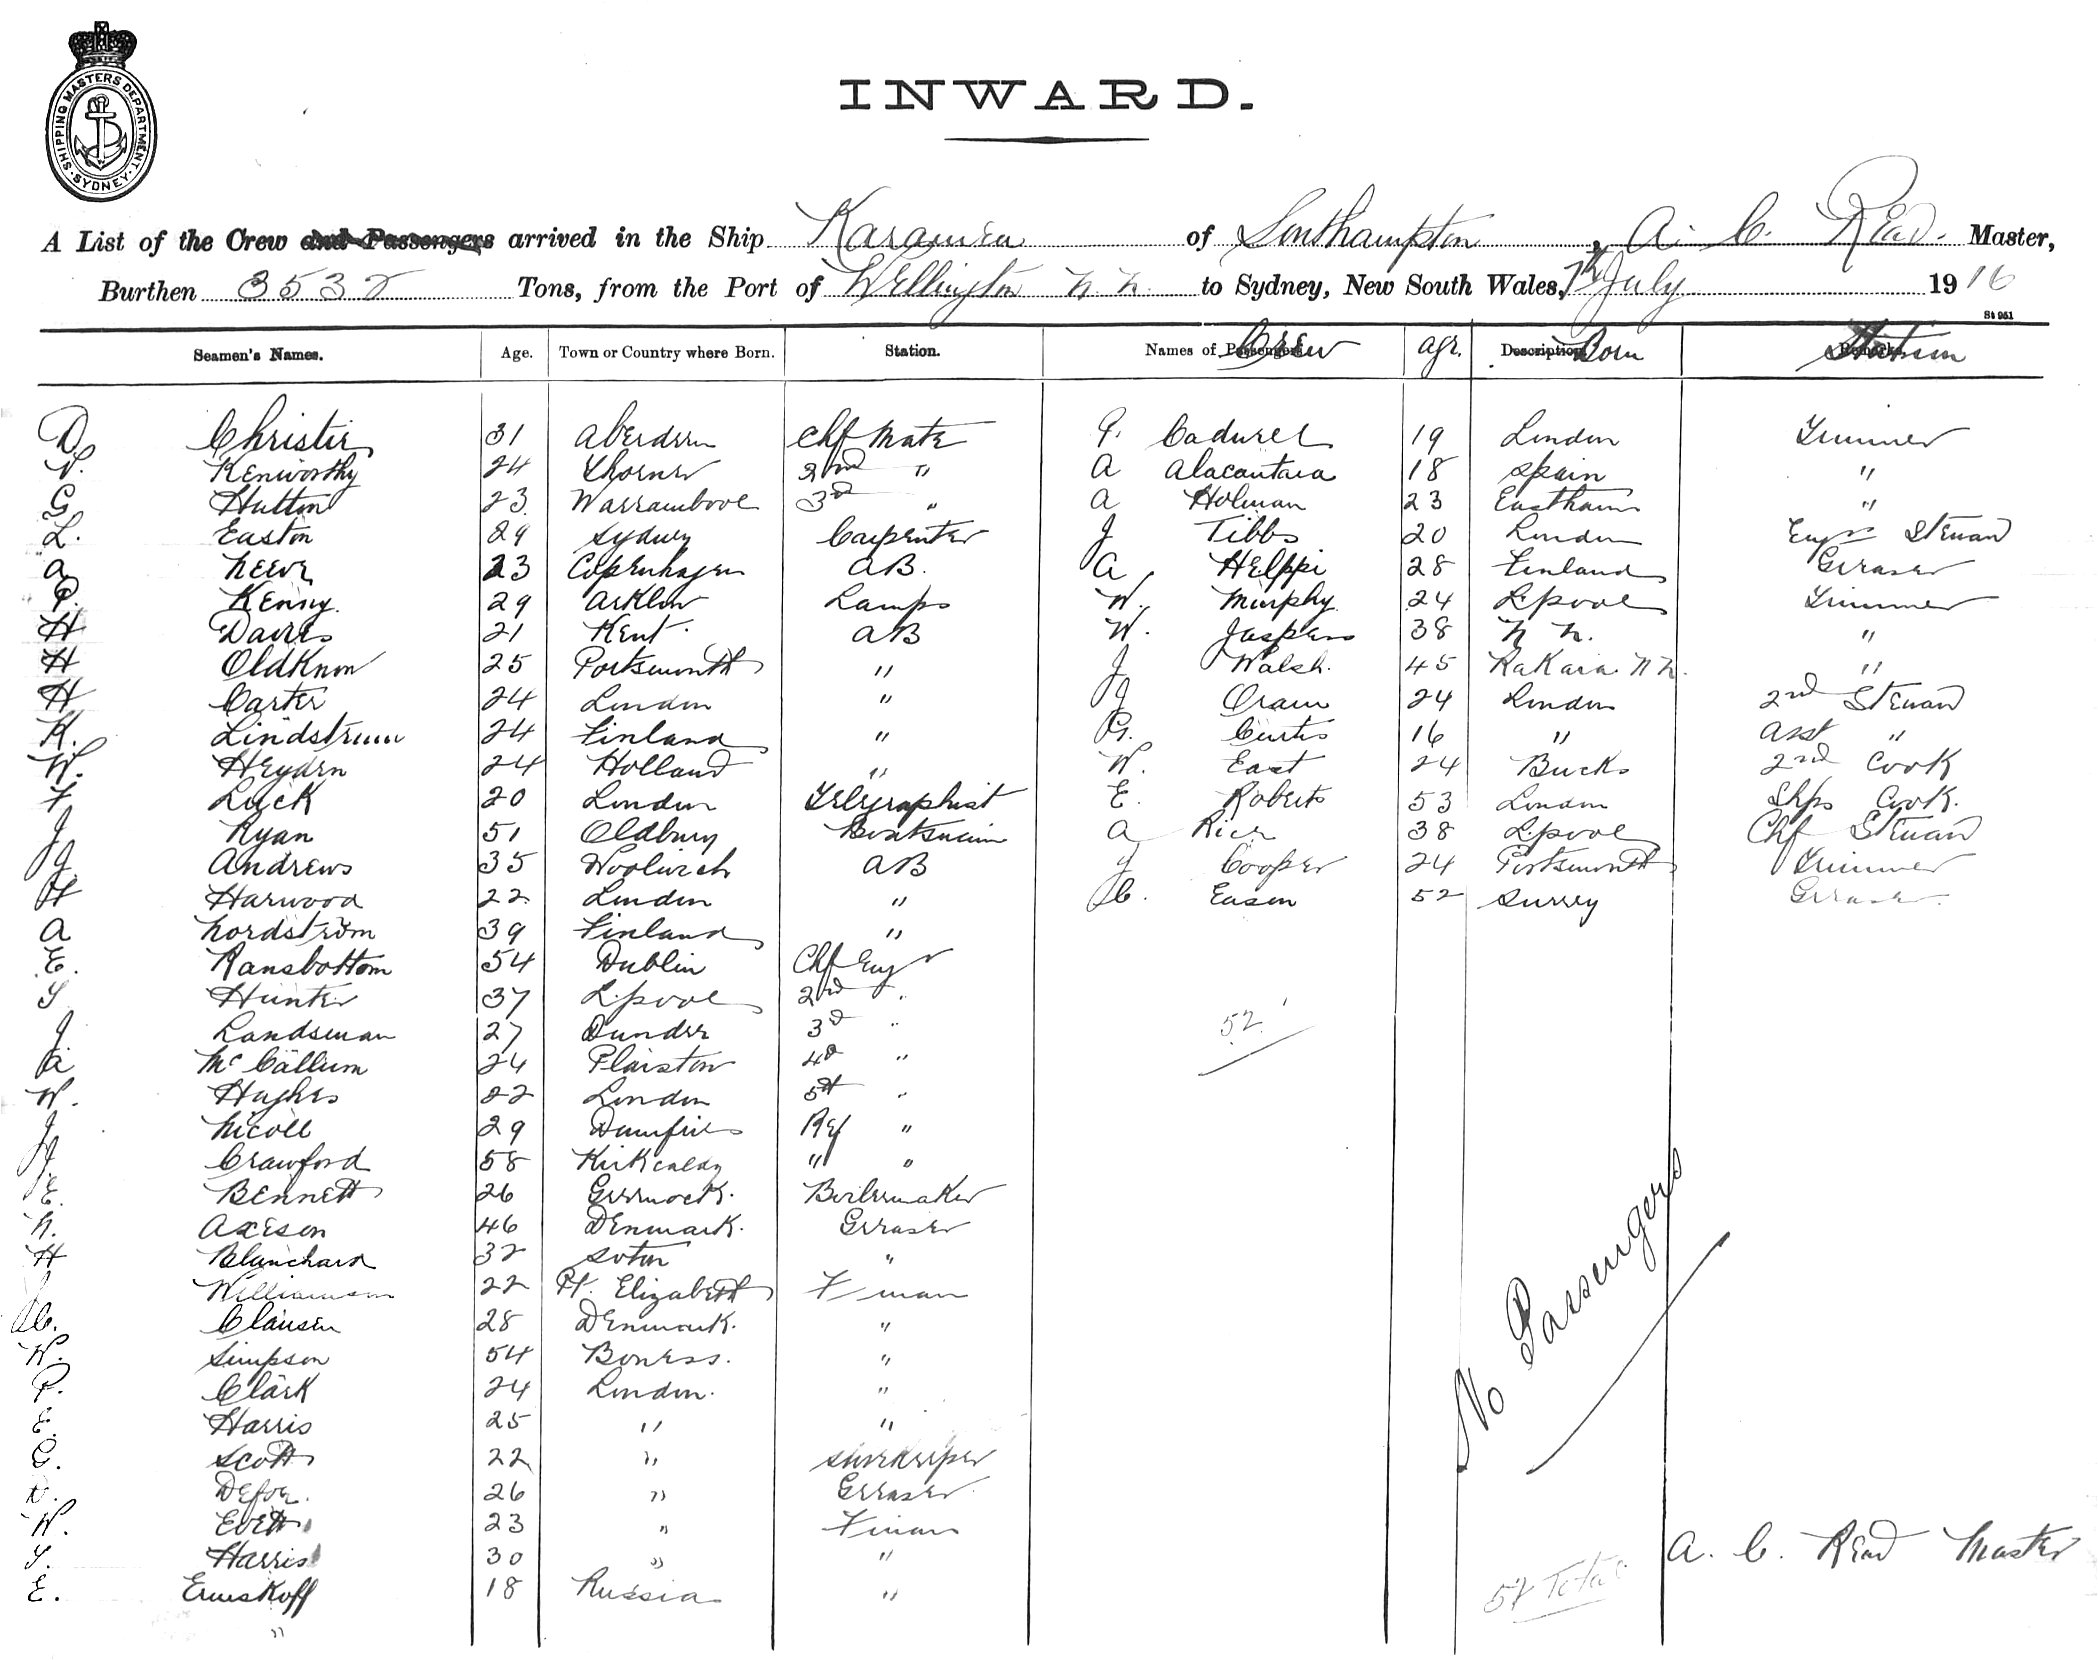 SHIPPING MASTERS DEPARTMENT. SYDNEY.
INWARD.
A List of the Crew and Passengers arrived in the Ship Karamea of Southampton, A. C. Read. Master,
Burthen 3532 Tons, from the Port of Wellington N. Z. to Sydney, New South Wales, 7th July 1916
St 951
Seamen's Names. Age. Town or Country where Born. Station. Names of Passengers Crew Age. Description Born Remarks Station
D. Christie 31 Aberdeen Chf Mate Cadwell 19 London Trimmer
Kenworthy 24 Thorner 2nd " A Alacantara 18 Spain "
G Hutton 23 Warrambool 3rd " A Holman 23 Eastham "
L. Easton 29 Sydney Carpenter J Tibbs 20 London Engrs Steward
A Neeve 23 Copenhagen AB. A Helppi 28 Finland Greaser
P. Kenny. 29 Arklow Lamps W. Murphy. 24 L'pool Trimmer
H Davies 21 Kent AB W. Jaspers 38 N Z. "
H Oldknow 25 Portsmouth " J Walsh. 45 Rakaia N Z. "
H Carter 24 London " J Oram 24 London 2nd Steward
K. Lindstrum 24 Finland " G. Curtis 16 " Asst "
W. Heyden 24 Holland " W. East 24 Bucks 2nd Cook
F Luck 20 London Telegraphist E. Roberts 53 London Shps Cook.
J Ryan 51 Oldbury Boatswain A Rice 38 L'pool Chf Steward
J Andrews 35 Woolwich AB J Cooper 24 Portsmouth Trimmer
H Harwood 22 London " C. Eason 52 Surrey Greaser.
A Nordström 39 Finland "
E. Ransbottom 54 Dublin Chf Engr
S Hunter 37 L'pool 2nd "
J Landsman 27 Dundee 3rd " 52
A McCallum 24 Plaistow 4th "
W. Hughes 22 London 5th "
J Nicoll 29 Dumfries Ref "
J Crawford 58 Kirkcaldy " "
E. Bennett 26 Greenock. Boilermaker
N. Axeson 46 Denmark. Greaser
H Blanchard 32 Soton "
J Williamson 22 Pt. Elizabeth F man
C. Clausen 28 Denmark. "
W. Simpson 54 Boness. "
P. Clark 24 London. "
E. Harris 25 " "
C. Scott 22 " Storekeeper
D. Defoe. 26 " Greaser
W. Evett 23 " F man
S. Harris 30 " "
E. Ermskoff 18 Russia "
"
No Passengers
A. C. Read Master
52 Total